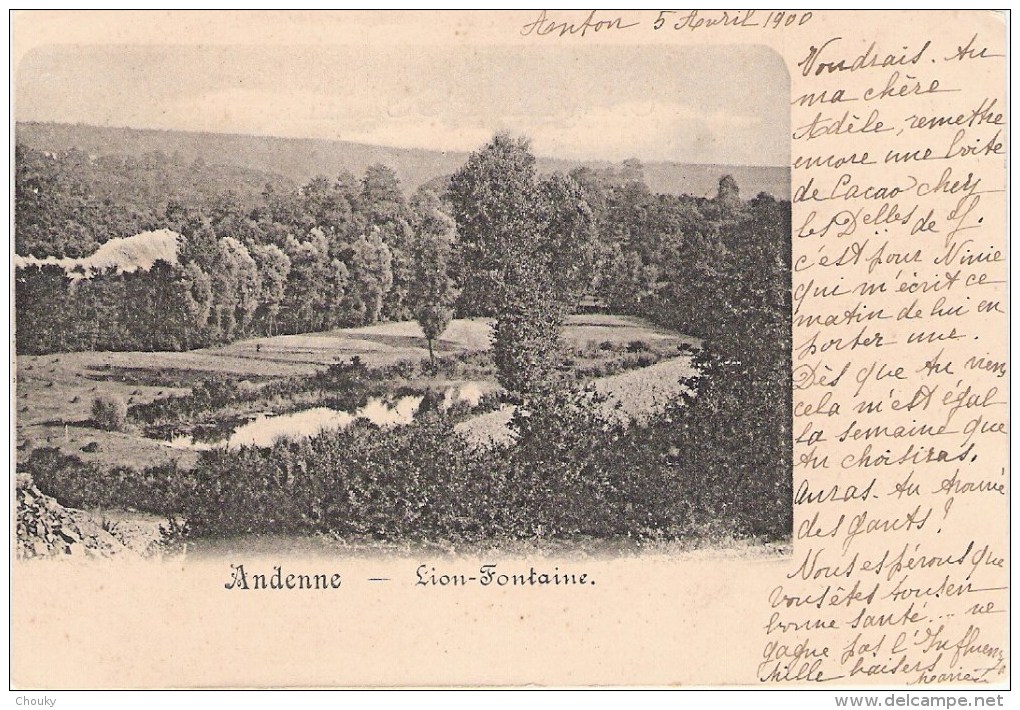 Anton 5 Avril 1900
Voudrais. Au
ma chère
Adèle, remettre
encore une boite
de Cacao chez
les Delles de F.
c'est pour Ninie
qui m'écrit ce
matin de lui en
porter une.
Dès que Au viens
cela m'est égal
la semaine que
Au choisiras.
Auras. Au trouvé
des gants!
Nous espérons que
vous êtes tous en
bonne santé... ne
gagne pas l'Influenza
Mille baisers
Andenne — Lion-Fontaine.
Chouky
www.delcampe.net